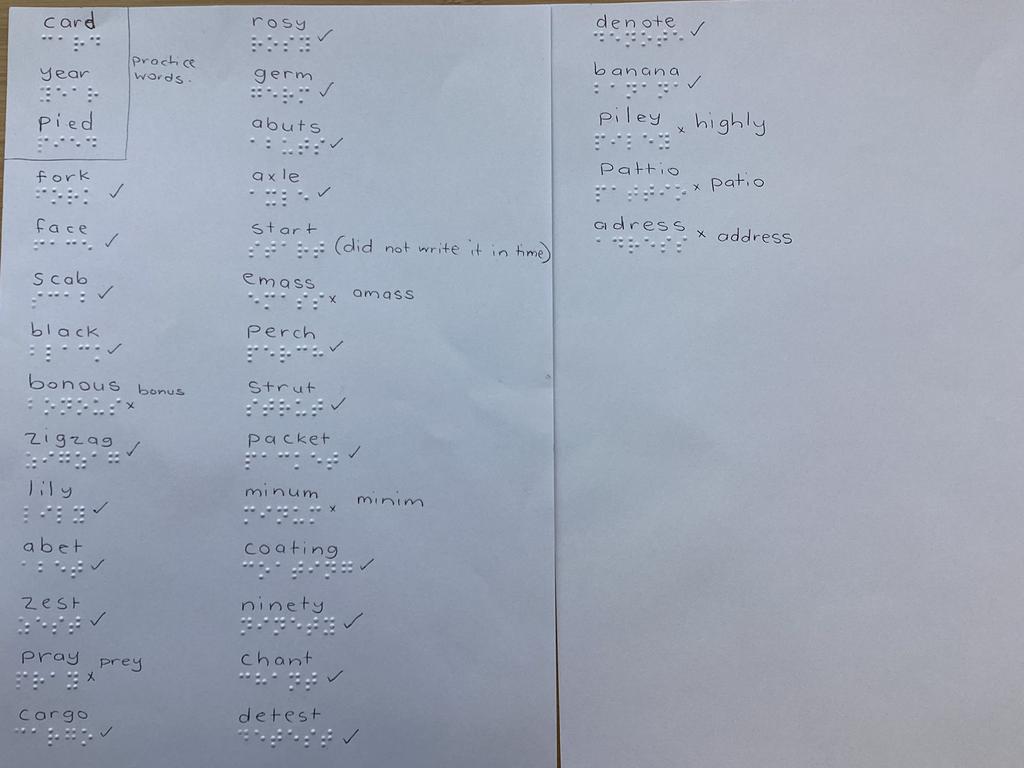 card
year
pied
practice
words.
fork ✓
face ✓
scab ✓
black ✓
bonous x bonus
zigzag ✓
lily ✓
abet ✓
zest ✓
pray x prey
cargo ✓
rosy ✓
germ ✓
abuts ✓
axle ✓
start (did not write it in time)
emass x amass
perch ✓
strut ✓
packet ✓
minum x minim
coating ✓
ninety ✓
chant ✓
detest ✓
denote ✓
banana ✓
piley x highly
pattio x patio
adress x address